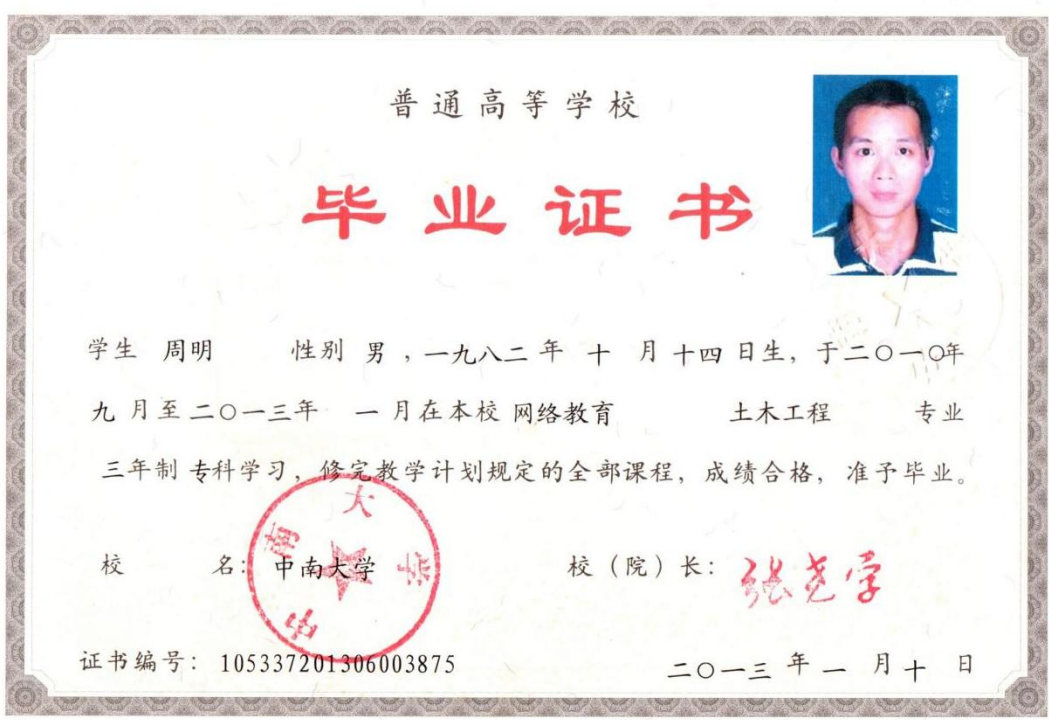 普通高等学校
毕业证书
学生 周明 性别 男 ，一九八二 年 十 月 十四 日生，于二〇一〇年
九 月至 二〇一三年 一 月在本校 网络教育 土木工程 专业
三年制 专科学习，修完教学计划规定的全部课程，成绩合格，准予毕业。
校 名：中南大学 校（院）长：张尧学
中南大学
证书编号：105337201306003875 二〇一三 年 一 月 十 日